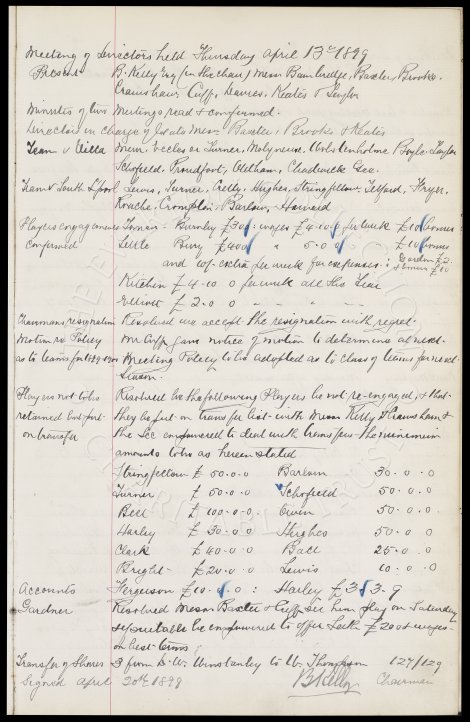 Meeting of Directors held Thursday April 13th 1899
Present B. Kelly Esq (in the chair) Messrs Bainbridge, Baxter, Brooks,
Crawshaw, Cuff, Davies, Keates & Taylor
Minutes of two Meetings read & confirmed.
Directors in charge of Messrs Baxter, Brooks & Keates
Team v Villa Muir, Eccles or Turner, Molyneux, Wolstenholme Boyle, Taylor
Schofield, Proudfoot, Oldham, Chadwick Gee.
Team v South Lpool Lewis, Turner, Hughes, Stringfellow, Telford, Fryer,
Roache, Crompton, Barlow,
Players engagements Toman - Burnley £30 : wages £4-10-0 per week £10 bonus
confirmed Settle Bury £400 " 5.0.0 £10 bonus
and extra per week for expenses : Gordon £2.
& bonus £10
Kitchen £4-10 0 per week all the Year
Elliott £2. 0 0 " - " - -
Chairmans resignation Resolved we accept the resignation with regret.
Motion re Policy Mr Cuff gave notice of motion to determine at next
as to teams for 1899-1900 Meeting Policy to be adopted as to class of teams for next
Season.
Players not to be Resolved that the following Players be not re-engaged, & that
retained but put they be put on transfer list with Messrs Kelly & Crawshaw &
on transfer the Sec empowered to deal with transfers the minimum
amounts to be as herein stated
Stringfellow £ 50.0.0 Barlow 30.0.0
Turner £ 50.0.0 Schofield 50.0.0
Bell £ 100.0.0 Owen 50.0.0
Harley £ 30.0.0 Hughes 50.0.0
Clark £40.0.0 Ball 25.0.0
Bright £20.0.0 Lewis 10.0.0
Accounts Ferguson £10.0.0 : Harley £3 3.9
Gardner Resolved Messrs Baxter & Cuff see him play on Saturday
& if suitable be empowered to offer Leith £20 & wages
on best terms
Transfer of Shares 3 from D.W. Winstanley to W. Thompson 127/129
Signed April 20th 1899 B Kelly Chairman